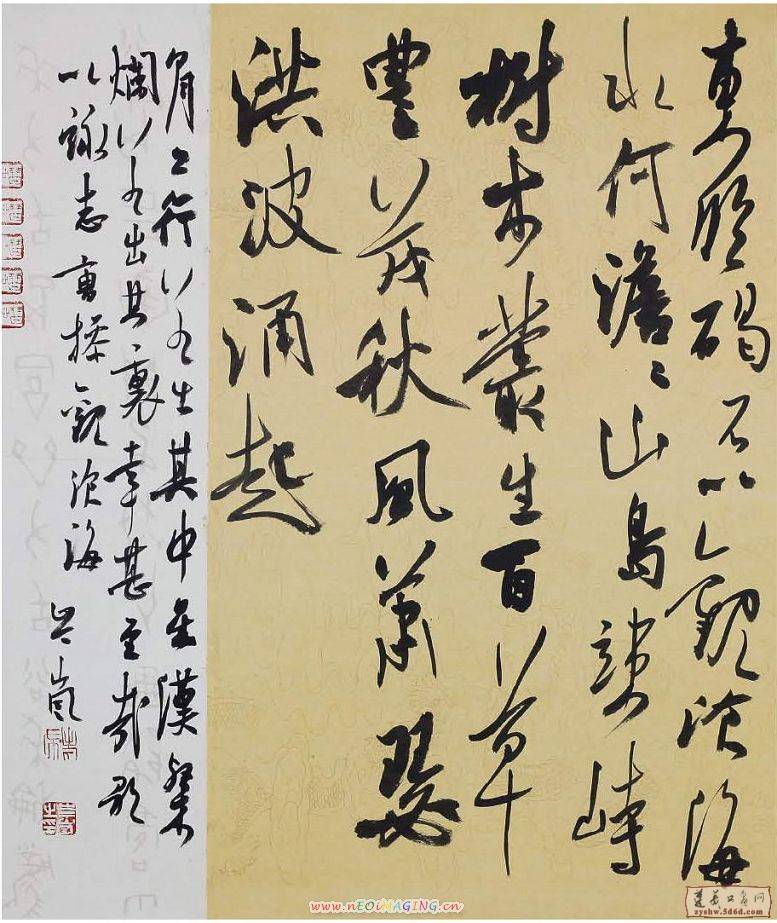 東臨碣石以觀滄海
水何澹〻山島竦峙
樹木叢生百草
豐茂秋風蕭瑟
洪波涌起
日月之行若出其中星漢粲
爛若出其裏幸甚至哉歌
以詠志 曹操觀滄海
www.nEOiMAGiNG.cn
zyshw.5d6d.com